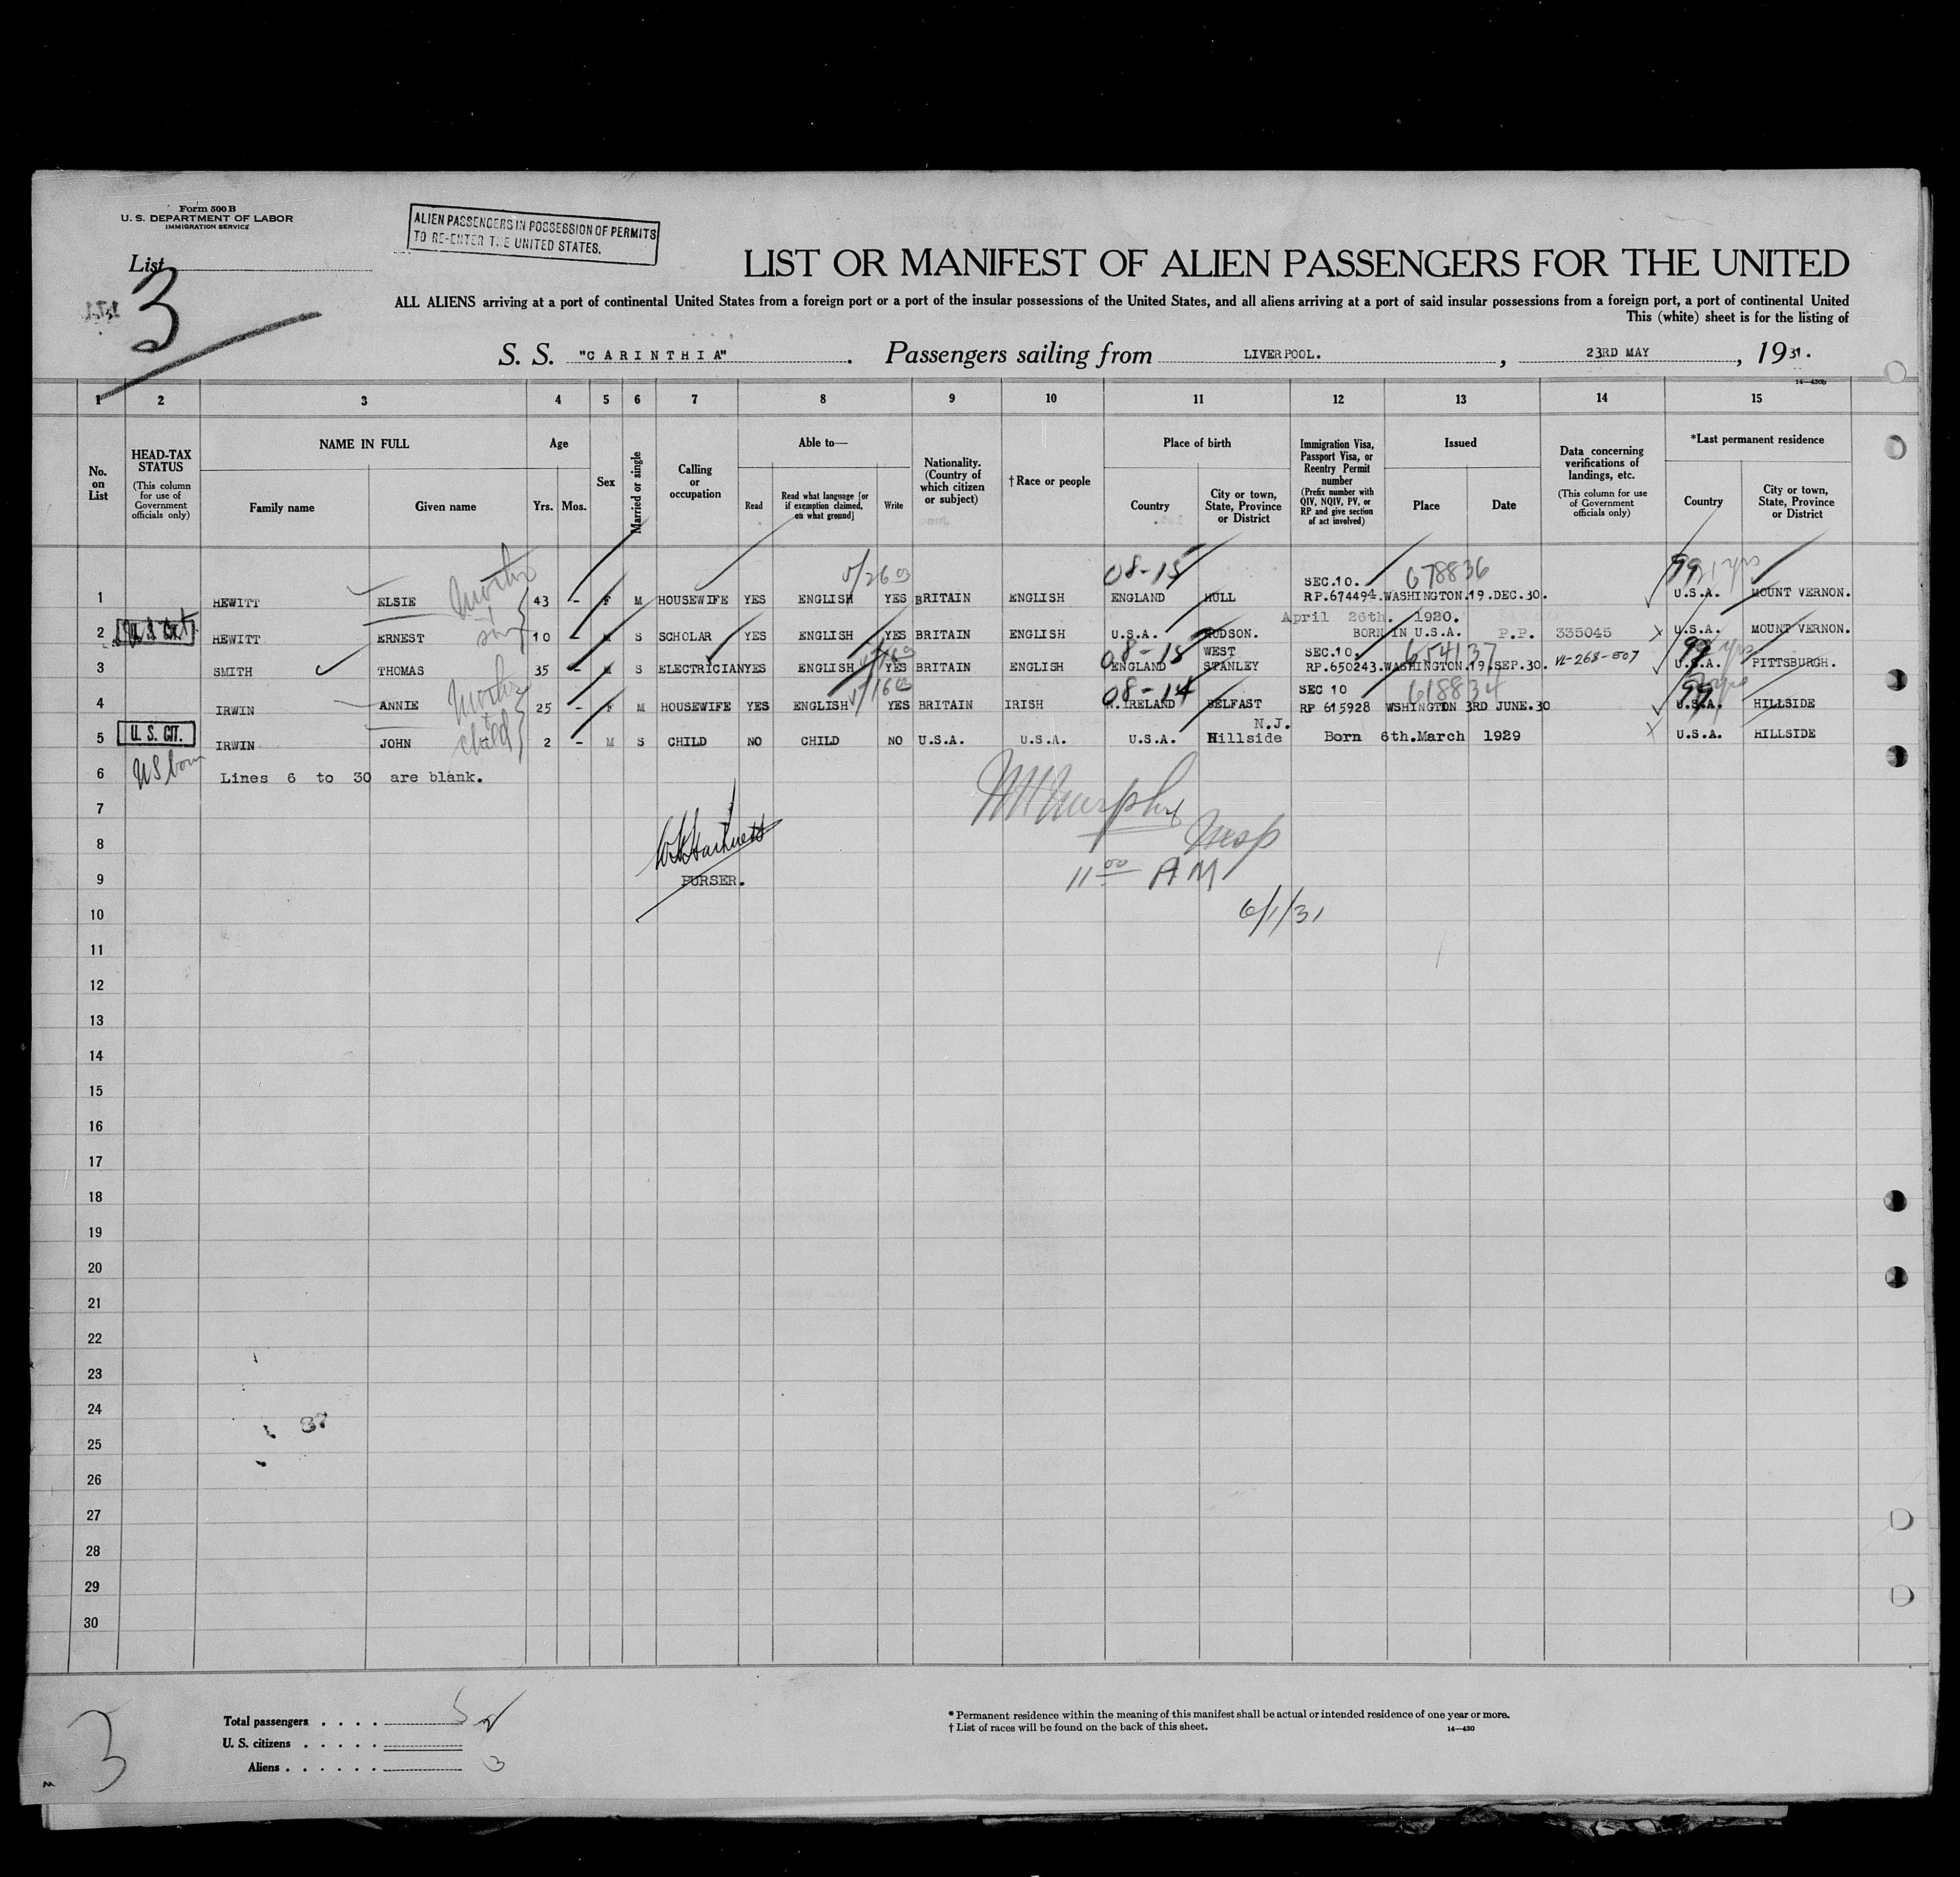 Form 500 B
U. S. DEPARTMENT OF LABOR
IMMIGRATION SERVICE
ALIEN PASSENGERS IN POSSESSION OF PERMITS
TO RE-ENTER THE UNITED STATES.
List
3
LIST OR MANIFEST OF ALIEN PASSENGERS FOR THE UNITED
ALL ALIENS arriving at a port of continental United States from a foreign port or a port of the insular possessions of the United States, and all aliens arriving at a port of said insular possessions from a foreign port, a port of continental United
This (white) sheet is for the listing of
S. S. "CARINTHIA" . Passengers sailing from LIVERPOOL. , 23RD MAY , 1931.
14—430b
1 2 3 4 5 6 7 8 9 10 11 12 13 14 15
No. on List
HEAD-TAX STATUS
(This column for use of Government officials only)
NAME IN FULL
Family name Given name
Age
Yrs. Mos.
Sex
Married or single
Calling or occupation
Able to—
Read Read what language [or if exemption claimed, on what ground] Write
Nationality. (Country of which citizen or subject)
†Race or people
Place of birth
Country City or town, State, Province or District
Immigration Visa, Passport Visa, or Reentry Permit number
(Prefix number with QIV, NQIV, PV, or RP and give section of act involved)
Issued
Place Date
Data concerning verifications of landings, etc.
(This column for use of Government officials only)
*Last permanent residence
Country City or town, State, Province or District
5/26 03 08-15 SEC.10. 678836 99
1 HEWITT ELSIE 43 - F M HOUSEWIFE YES ENGLISH YES BRITAIN ENGLISH ENGLAND HULL RP.674494. WASHINGTON. 19.DEC.30. U.S.A. MOUNT VERNON.
Mother + son
April 26th. 1920.
2 U.S. Cit. HEWITT ERNEST 10 - M S SCHOLAR YES ENGLISH YES BRITAIN ENGLISH U.S.A. HUDSON. BORN IN U.S.A. P.P. 335045 U.S.A. MOUNT VERNON.
08-15 WEST SEC.10. 654137 99
3 SMITH THOMAS 35 - M S ELECTRICIAN YES ENGLISH YES BRITAIN ENGLISH ENGLAND STANLEY RP.650243. WASHINGTON. 19.SEP.30. VL-268-507 U.S.A. PITTSBURGH.
08-14 SEC 10 618834 99
4 IRWIN ANNIE 25 - F M HOUSEWIFE YES ENGLISH YES BRITAIN IRISH N.IRELAND BELFAST RP 615928 WSHINGTON 3RD JUNE.30 U.S.A. HILLSIDE
Mother + child
N.J.
5 U. S. CIT. IRWIN JOHN 2 - M S CHILD NO CHILD NO U.S.A. U.S.A. U.S.A. Hillside Born 6th.March 1929 U.S.A. HILLSIDE
US born
6 Lines 6 to 30 are blank.
7
WHMurphy
Insp
8
9 PURSER.
11 00 AM
10
6/1/31
11
12
13
14
15
16
17
18
19
20
21
22
23
24
37
25
26
27
28
29
30
3
Total passengers . . . . 5
2
U. S. citizens . . . . .
Aliens . . . . . . 3
* Permanent residence within the meaning of this manifest shall be actual or intended residence of one year or more.
† List of races will be found on the back of this sheet.
14—430